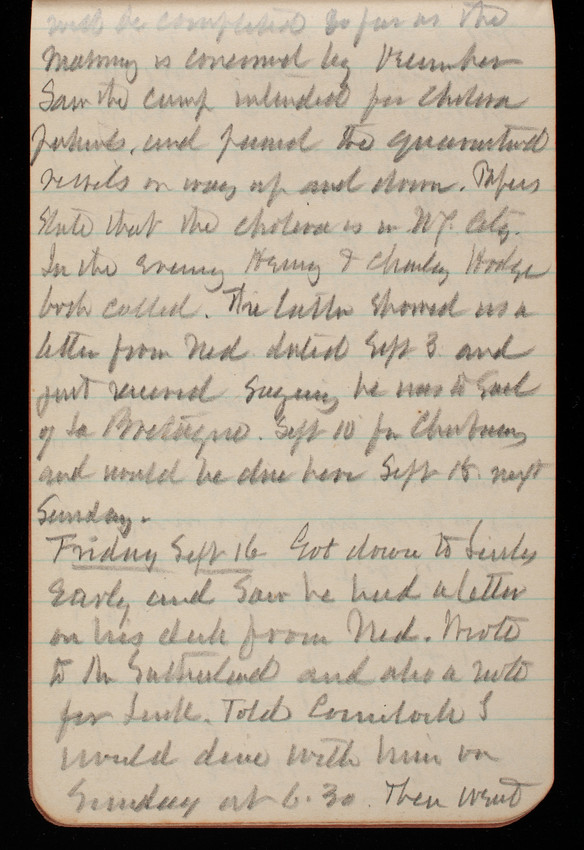 will be completed so far as the
masonry is concerned by December
Saw the camp intended for cholera
patients, and passed the quarantined
vessels on way up and down. Papers
State that the cholera is in N.Y. City.
In the evening Henry & Charley Hodge
both called. The latter showed us a
letter from Ned dated Sept 3 and
just received saying he was to Sail
of La Bretagne. Sept 10 for
and would be due here Sept 18. next
Sunday.
Friday Sept 16 Got down to
early and Saw he had a letter
on his desk from Ned. Wrote
to Mr Sutherland and also a note
for Linth. Told Comstock I
would dine with him on
Sunday at 6.30. Then went